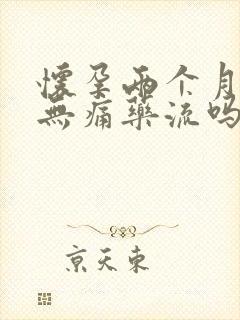 懷孕两个月
無痛藥流吗
京天東